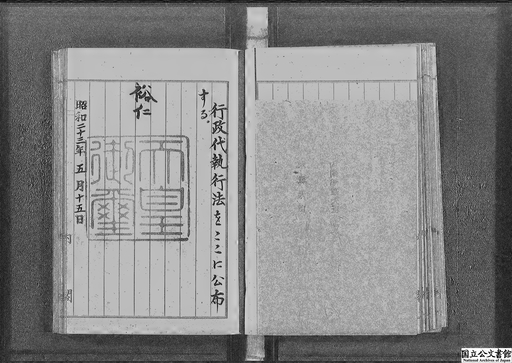 行政代執行法をここに公布
する。
裕仁
天皇
御璽
昭和二十三年五月十五日
内閣
国立公文書館
National Archives of Japan